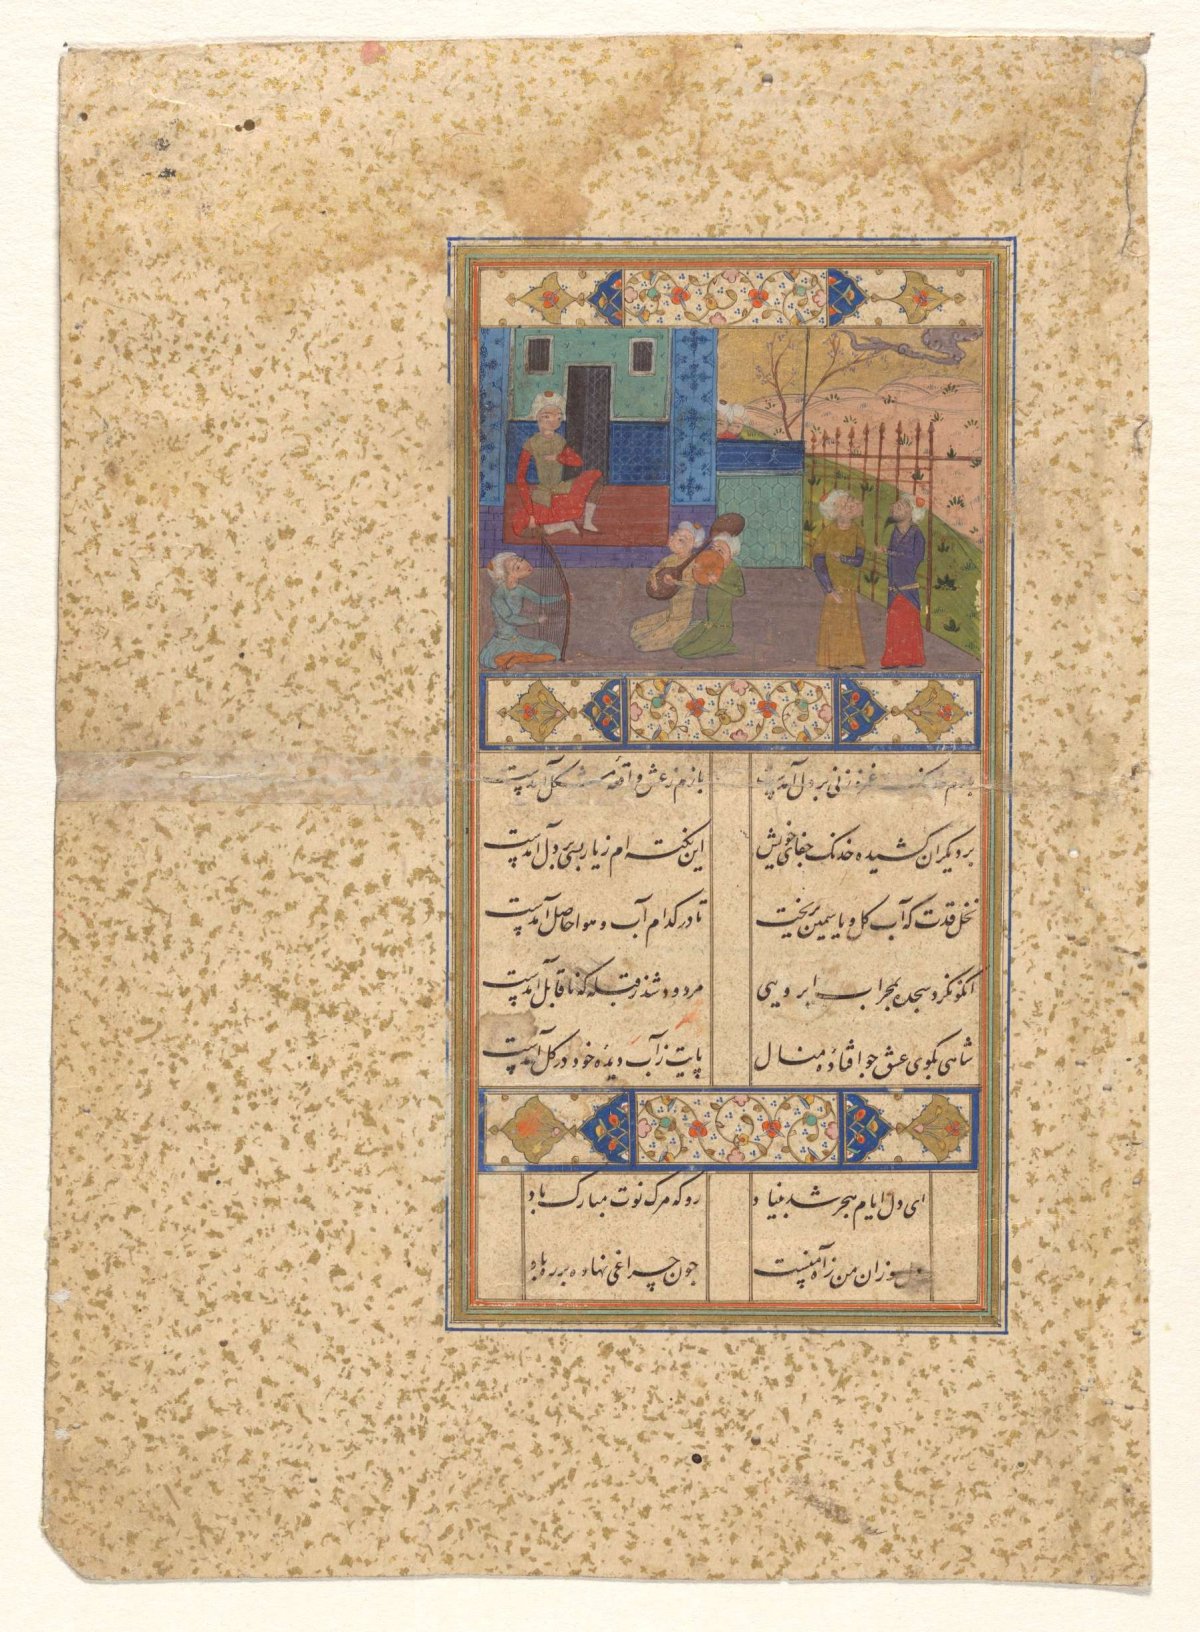 بازم خدنک غمزه زنی بر دل آمدست بازم ز عشق واقعه مشکل آمدست
بر دیکران کشیده خدنک جفای خویش این نکته ام ز یار بسی بر دل آمدست
نخل قدت که آب کل و یاسمین بریخت تا در کدام آب و هوا حاصل آمدست
آنکو نکرد سجده بمحراب ابرویی مردود شد ز قبله که ناقابل آمدست
شاهی بکوی عشق جو افتاده منال پایت ز آب دیده خود در کل آمدست
ای دل ایام هجر شد بنیاد رو که مرک نوت مبارک باد
سوزان من ز آه منست جون چراغی نهاده بر ره باد